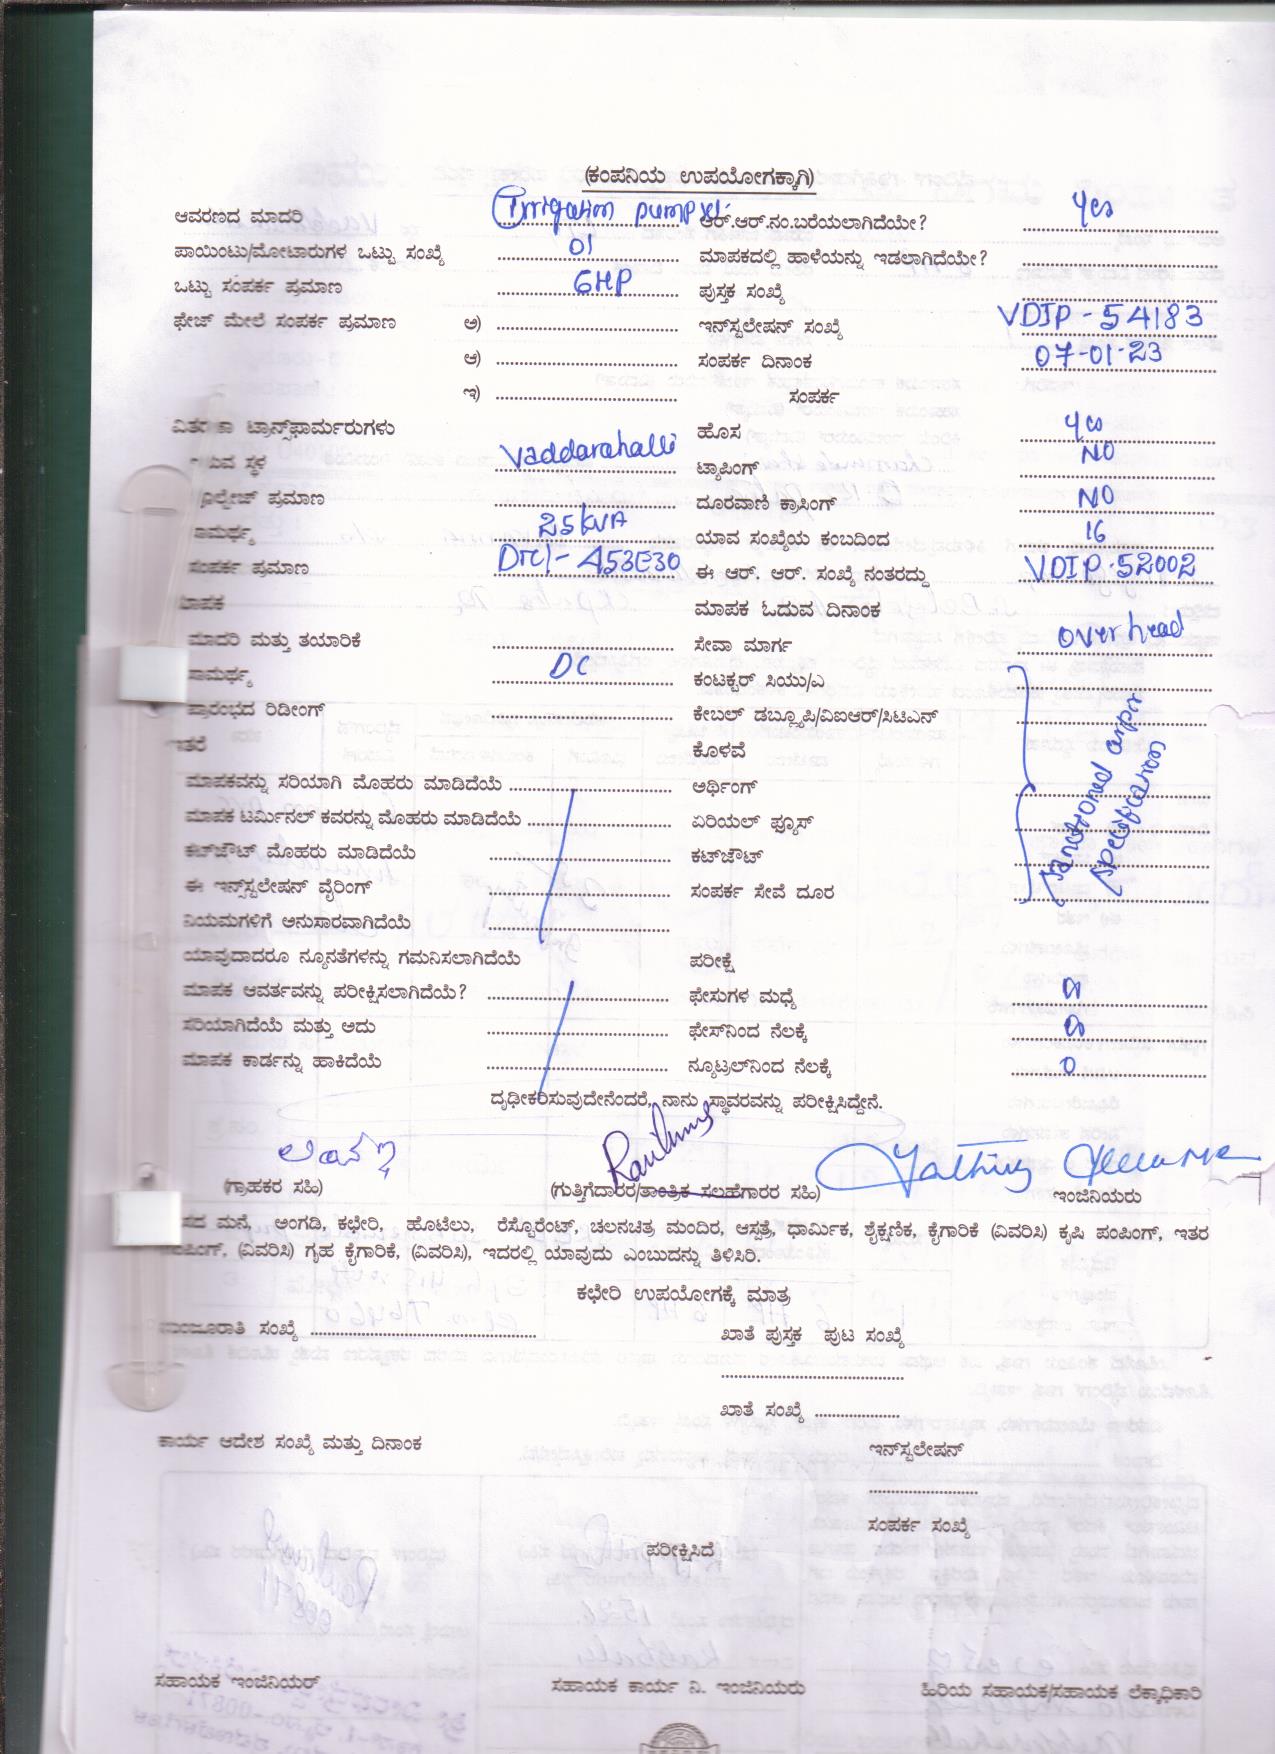 (ಕಂಪನಿಯ ಉಪಯೋಗಕ್ಕಾಗಿ)
ಆವರಣದ ಮಾದರಿ Irrigation pump ಆರ್.ಆರ್.ನಂ.ಬರೆಯಲಾಗಿದೆಯೇ? yes
ಪಾಯಿಂಟು/ಮೋಟಾರುಗಳ ಒಟ್ಟು ಸಂಖ್ಯೆ 01 ಮಾಪಕದಲ್ಲಿ ಹಾಳೆಯನ್ನು ಇಡಲಾಗಿದೆಯೇ?
ಒಟ್ಟು ಸಂಪರ್ಕ ಪ್ರಮಾಣ 6HP ಪುಸ್ತಕ ಸಂಖ್ಯೆ
ಫೇಜ್ ಮೇಲೆ ಸಂಪರ್ಕ ಪ್ರಮಾಣ ಅ) ಇನ್‌ಸ್ಟಲೇಷನ್ ಸಂಖ್ಯೆ VDIP-54183
ಆ) ಸಂಪರ್ಕ ದಿನಾಂಕ 07-01-23
ಇ) ಸಂಪರ್ಕ
ಟ್ರಾನ್ಸ್‌ಫಾರ್ಮರುಗಳು ಹೊಸ yes
ಸ್ಥಳ Vaddarahalli ಟ್ಯಾಪಿಂಗ್ NO
ಪ್ರಮಾಣ ದೂರವಾಣಿ ಕ್ರಾಸಿಂಗ್ NO
ಸಾಮರ್ಥ್ಯ 25kVA ಯಾವ ಸಂಖ್ಯೆಯ ಕಂಬದಿಂದ 16
ಸಂಪರ್ಕ ಪ್ರಮಾಣ DTC/- A53E30 ಈ ಆರ್. ಆರ್. ಸಂಖ್ಯೆ ನಂತರದ್ದು VDIP-52002
ಮಾಪಕ ಮಾಪಕ ಓದುವ ದಿನಾಂಕ
ಮಾದರಿ ಮತ್ತು ತಯಾರಿಕೆ ಸೇವಾ ಮಾರ್ಗ overhead
ಸಾಮರ್ಥ್ಯ DC ಕಂಟಕ್ಟರ್ ಸಿಯು/ಎ
ಪ್ರಾರಂಭದ ರಿಡೀಂಗ್ ಕೇಬಲ್ ಡಬ್ಲ್ಯೂಪಿ/ವಿಐಆರ್/ಸಿಟಿಎನ್
ಇತರೆ ಕೊಳವೆ
ಮಾಪಕವನ್ನು ಸರಿಯಾಗಿ ಮೊಹರು ಮಾಡಿದೆಯೆ ಅರ್ಥಿಂಗ್
ಮಾಪಕ ಟರ್ಮಿನಲ್ ಕವರನ್ನು ಮೊಹರು ಮಾಡಿದೆಯೆ ಏರಿಯಲ್ ಫ್ಯೂಸ್
ಕಟ್‌ಜೌಟ್ ಮೊಹರು ಮಾಡಿದೆಯೆ ಕಟ್‌ಜೌಟ್
ಈ ಇನ್ಸ್‌ಸ್ಟಲೇಷನ್ ವೈರಿಂಗ್ ಸಂಪರ್ಕ ಸೇವೆ ದೂರ
ನಿಯಮಗಳಿಗೆ ಅನುಸಾರವಾಗಿದೆಯೆ
ಯಾವುದಾದರೂ ನ್ಯೂನತೆಗಳನ್ನು ಗಮನಿಸಲಾಗಿದೆಯೆ ಪರೀಕ್ಷೆ
ಮಾಪಕ ಆವರ್ತವನ್ನು ಪರೀಕ್ಷಿಸಲಾಗಿದೆಯೆ? ಫೇಸುಗಳ ಮಧ್ಯೆ
ಸರಿಯಾಗಿದೆಯೆ ಮತ್ತು ಅದು ಫೇಸ್‌ನಿಂದ ನೆಲಕ್ಕೆ
ಮಾಪಕ ಕಾರ್ಡನ್ನು ಹಾಕಿದೆಯೆ ನ್ಯೂಟ್ರಲ್‌ನಿಂದ ನೆಲಕ್ಕೆ 0
ದೃಢೀಕರಿಸುವುದೇನೆಂದರೆ, ನಾನು ಸ್ಥಾವರವನ್ನು ಪರೀಕ್ಷಿಸಿದ್ದೇನೆ.
(ಗ್ರಾಹಕರ ಸಹಿ) (ಗುತ್ತಿಗೆದಾರರ/ತಾಂತ್ರಿಕ ಸಲಹೆಗಾರರ ಸಹಿ) ಇಂಜಿನಿಯರು
ಮನೆ, ಅಂಗಡಿ, ಕಛೇರಿ, ಹೊಟೆಲು, ರೆಸ್ಟೊರೆಂಟ್, ಚಲನಚಿತ್ರ ಮಂದಿರ, ಆಸ್ಪತ್ರೆ, ಧಾರ್ಮಿಕ, ಶೈಕ್ಷಣಿಕ, ಕೈಗಾರಿಕೆ (ವಿವರಿಸಿ) ಕೃಷಿ ಪಂಪಿಂಗ್, ಇತರ
ಪಂಪಿಂಗ್, (ವಿವರಿಸಿ) ಗೃಹ ಕೈಗಾರಿಕೆ, (ವಿವರಿಸಿ), ಇದರಲ್ಲಿ ಯಾವುದು ಎಂಬುದನ್ನು ತಿಳಿಸಿರಿ.
ಕಛೇರಿ ಉಪಯೋಗಕ್ಕೆ ಮಾತ್ರ
ಮಂಜೂರಾತಿ ಸಂಖ್ಯೆ ಖಾತೆ ಪುಸ್ತಕ ಪುಟ ಸಂಖ್ಯೆ
ಖಾತೆ ಸಂಖ್ಯೆ
ಕಾರ್ಯ ಆದೇಶ ಸಂಖ್ಯೆ ಮತ್ತು ದಿನಾಂಕ ಇನ್‌ಸ್ಟಲೇಷನ್
ಸಂಪರ್ಕ ಸಂಖ್ಯೆ
ಪರೀಕ್ಷಿಸಿದೆ
ಸಹಾಯಕ ಇಂಜಿನಿಯರ್ ಸಹಾಯಕ ಕಾರ್ಯ ನಿ. ಇಂಜಿನಿಯರು ಹಿರಿಯ ಸಹಾಯಕ/ಸಹಾಯಕ ಲೆಕ್ಕಾಧಿಕಾರಿ